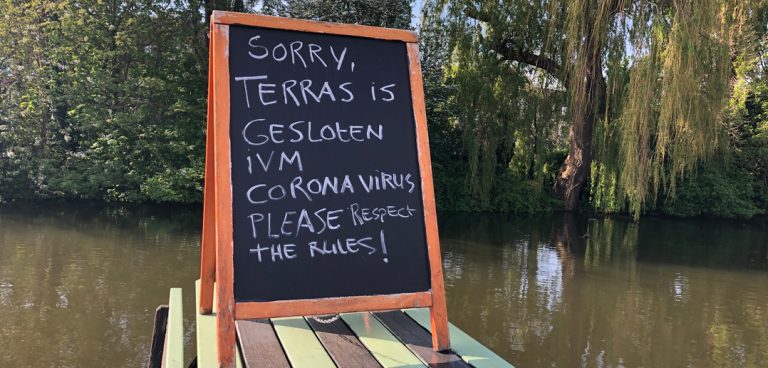 SORRY,
TERRAS iS
GESLOTEN
iVM
CORONA VIRUS
PLEASE Respect
THE RULES!